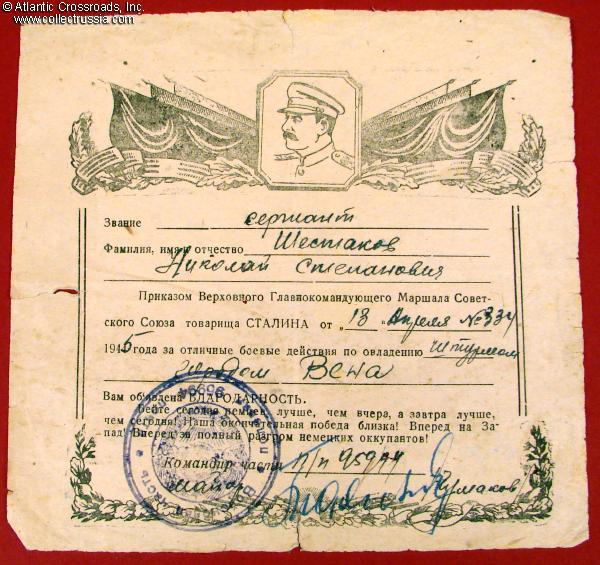 © Atlantic Crossroads, Inc.
www.collectrussia.com
Звание сержант
Фамилия, имя и отчество Шестаков
Николай Степанович
Приказом Верховного Главнокомандующего Маршала Совет-
ского Союза товарища СТАЛИНА от „13 „ Апреля № 334
1945 года за отличные боевые действия по овладению штурмом
городом Вена
Вам об'явлена БЛАГОДАРНОСТЬ.
Бейте сегодня немцев лучше, чем вчера, а завтра лучше,
чем сегодня! Наша окончательная победа близка! Вперед на За-
пад! Вперед за полный разгром немецких оккупантов!
Командир части п/п 95944
майор Чумаков